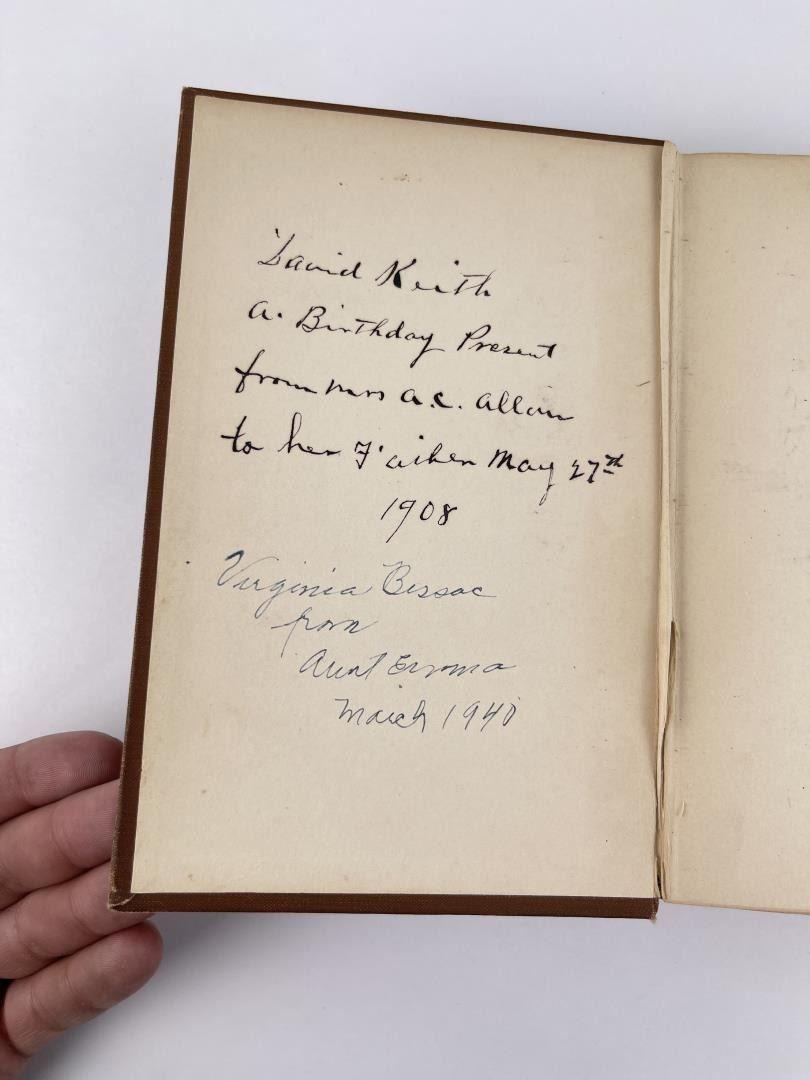 David Keith
a. Birthday Present
from Mrs a.c. Allen
to her Father May 27th
1908
Virginia Bissac
from
Aunt Erroma
March 1940